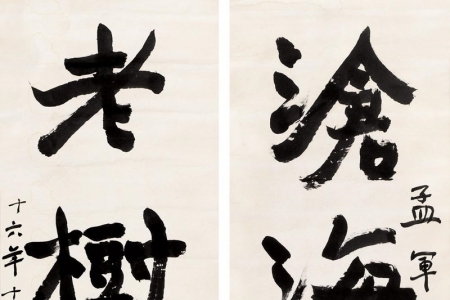 滄海
孟軍
老樹
十六年十